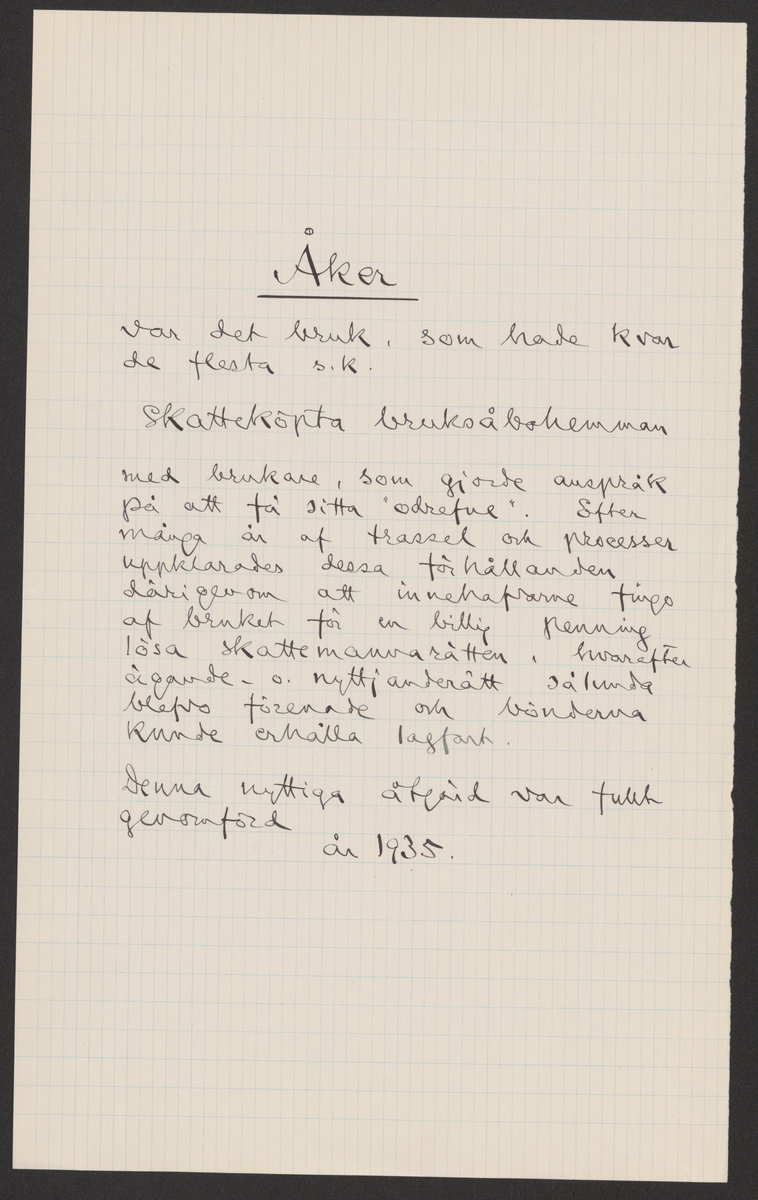 Åker
var det bruk, som hade kvar
de flesta s.k.
Skatteköpta bruksåbohemman
med brukare, som gjorde anspråk
på att få sitta "odrefne". Efter
många år af trassel och processer
uppklarades dessa förhållanden
därigenom att innehafvarne fingo
af bruket för en billig penning
lösa skattemannarätten, hvarefter
ägande- o. nyttjanderätt sålunda
blefvo förenade och bönderna
kunde erhålla lagfart.
Denna nyttiga åtgärd var fullt
genomförd
år 1935.